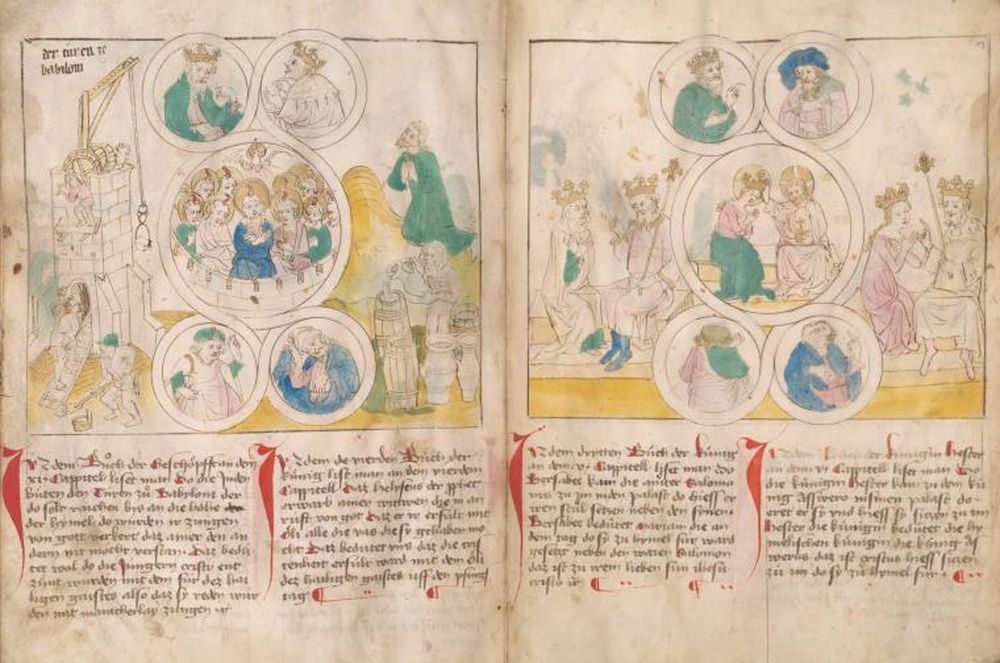 der turen ze
babiloni
In dem Bůch der Geschöpff an dem
xi Cappitel liset man Do die Juden
buten den Turen zů Babiloni der
do solt raichen bis an die höhe
der hymel do wurden ir zungen
von gott verkert daz ainer den an
dern nit mocht verstan Daz bedü
tet wol do die Jungern cristi ent
zünt wurden mit dem für dez hai
ligen gaistes also daz sy reden wur
den mit mancherlay zungen
In dem de vierden Bůch der
künig list man an dem vierden
Cappitell Daz helyseus der
erwarb ainer witwen die in an
rüft von got Daz er ir erfult mit
öli alle die vas die sy gelihen mo
cht Daz bedütet vns daz die cris
tenheit erfult ward mit dem öli
dez hailigen gaistes uff den pfingst
tag
In dem dritten Bůch der künig
an dem Cappitell liset man Do
Bersabee kam die můter Salomo
nis zů im in den palast do hiess er
iren stůl setzen neben den synen
Bersabee bedütet mariam die an
dem tag do sy zů hymel für ward
gesetzt neben den waren Salomon
daz ist zů irem lieben sun ihesu
cristo
In dem Bůch der künigin hester
an dem vi Cappitell liset man Do
die künigin hester kam zů dem kü
nig Asswero in sinen palast do
eret er sy vnd hiess sy sitzen zů im
hester die künigin bedütet die hy
melischen künigin die künig As
werus daz ist cristus hiess sitzen
zů im do sy zů hymel für